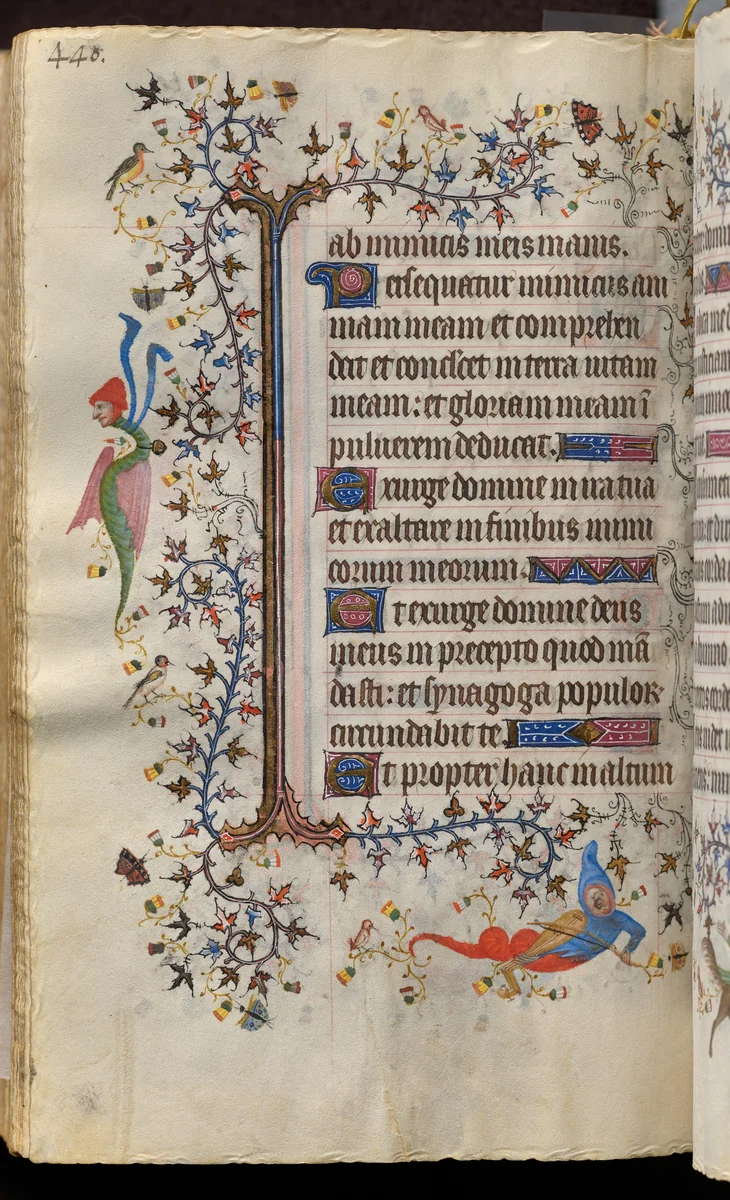 440.
ab inimicis meis inanis.
Persequatur inimicus ani
mam meam et comprehen
dat et conculcet in terra uitam
meam: et gloriam meam ī
puluerem deducat.
Exurge domine in ira tua
et exaltare in finibus inimi
corum meorum.
Et exurge domine deus
meus in precepto quod mā
dasti: et synagoga populoꝝ
circundabit te.
Et propter hanc in altum